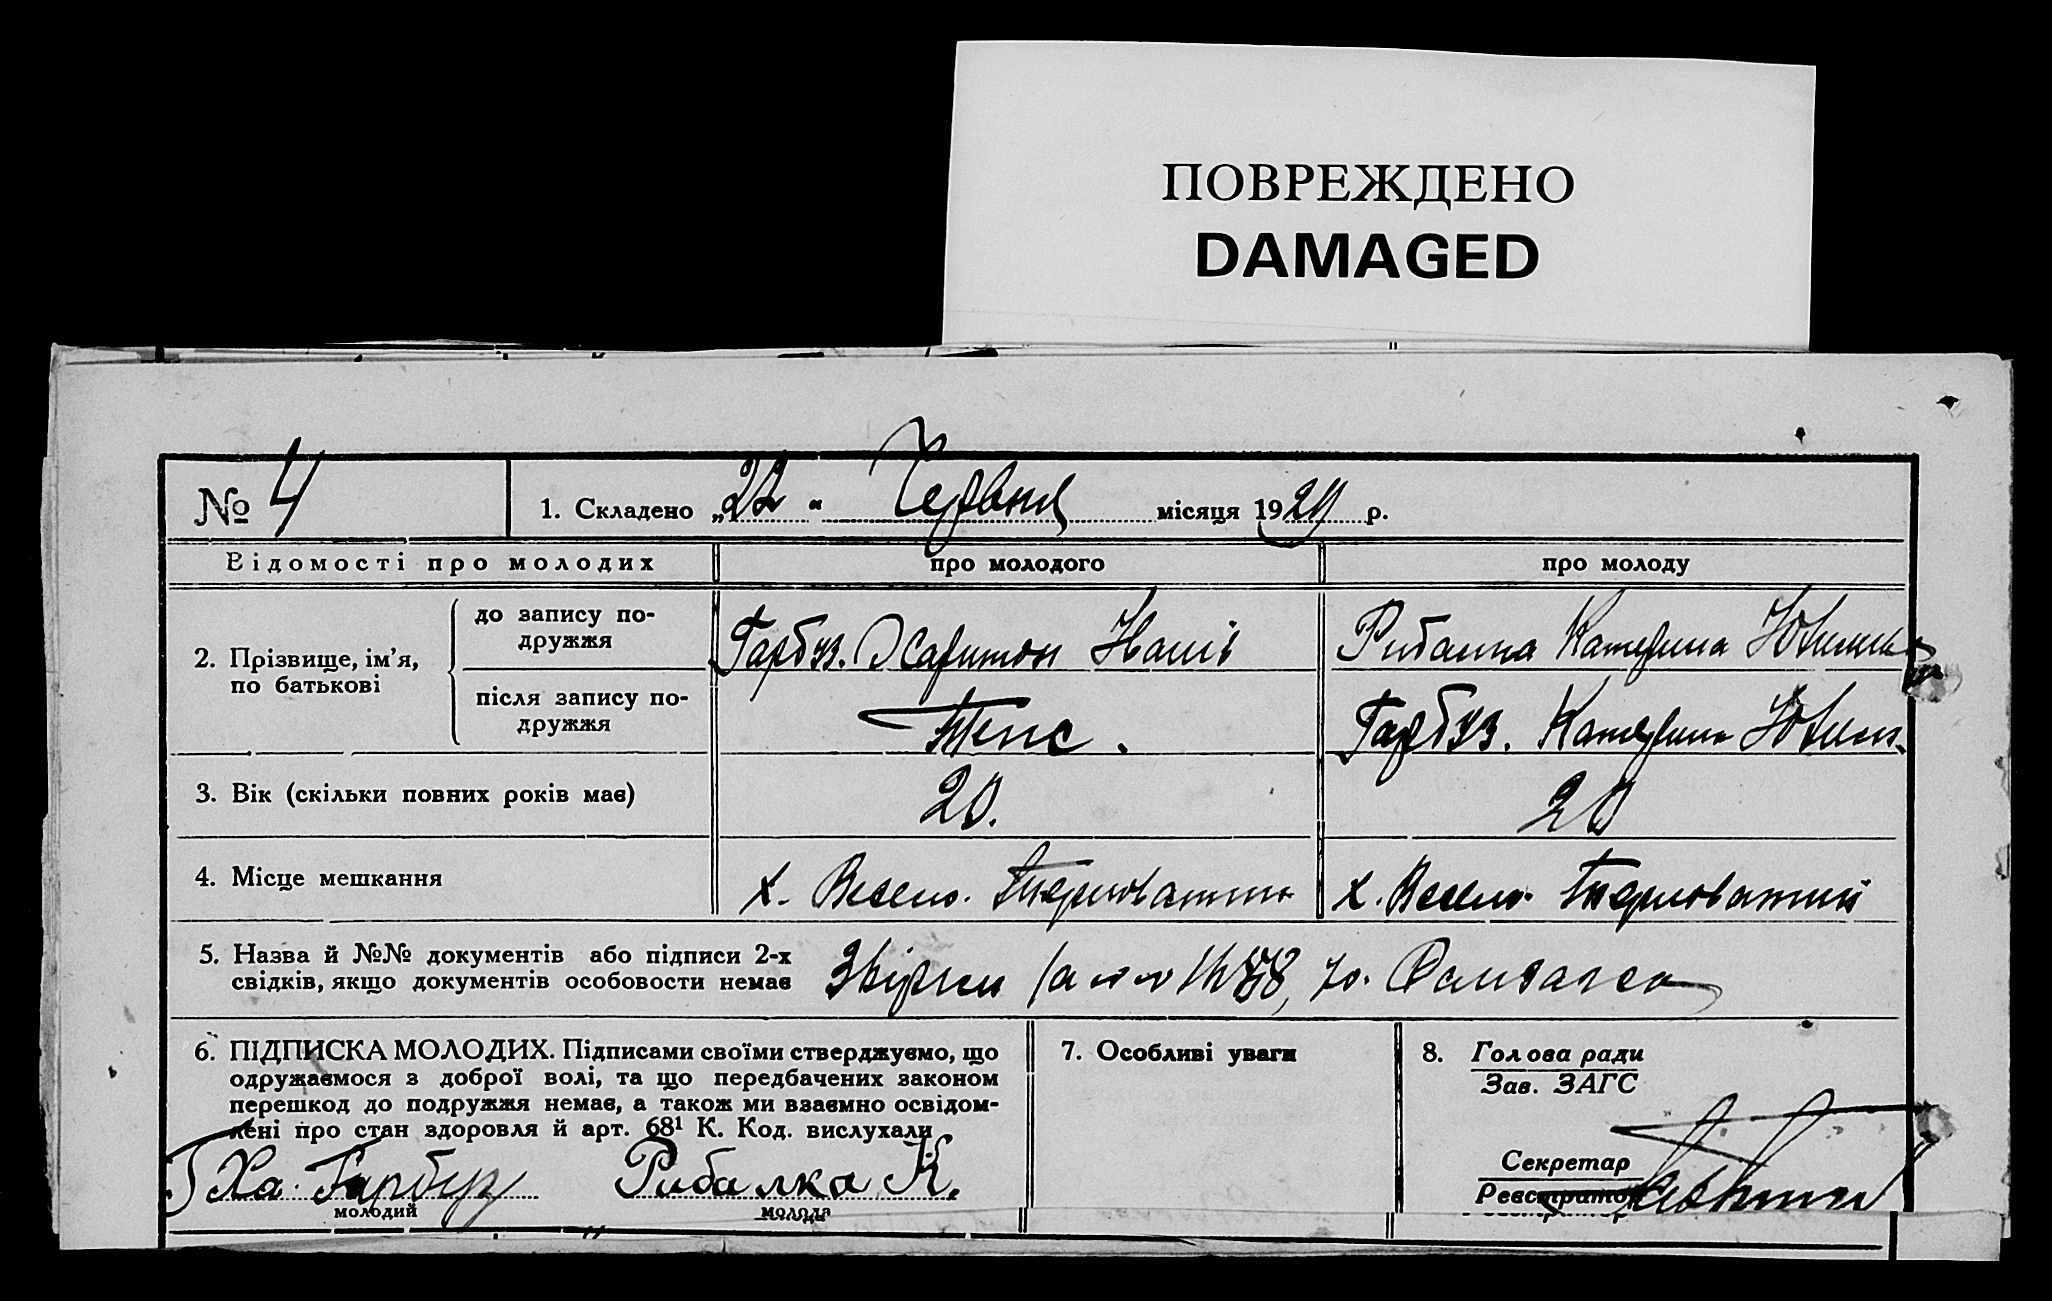 ПОВРЕЖДЕНО
DAMAGED
№ 4
1. Складено „22“ Червня місяця 1929 р.
Відомості про молодих
про молодого
про молоду
2. Прізвище, ім’я, по батькові
до запису подружжя
Гарбуз. Харитон
Рибалка Катерина
після запису подружжя
Гарбуз. Катерина
3. Вік (скільки повних років має)
20.
20
4. Місце мешкання
х. Весело. Терноватий
х. Весело. Терноватий
5. Назва й №№ документів або підписи 2-х
свідків, якщо документів особовости немає
6. ПІДПИСКА МОЛОДИХ. Підписами своїми стверджуємо, що
одружаємося з доброї волі, та що передбачених законом
перешкод до подружжя немає, а також ми взаємно освідом-
лені про стан здоровля й арт. 68¹ К. Код. вислухали
Ха. Гарбуз
молодий
Рибалка К.
молода
7. Особливі уваги
8. Голова ради
Зав. ЗАГС
Секретар
Реєстратор